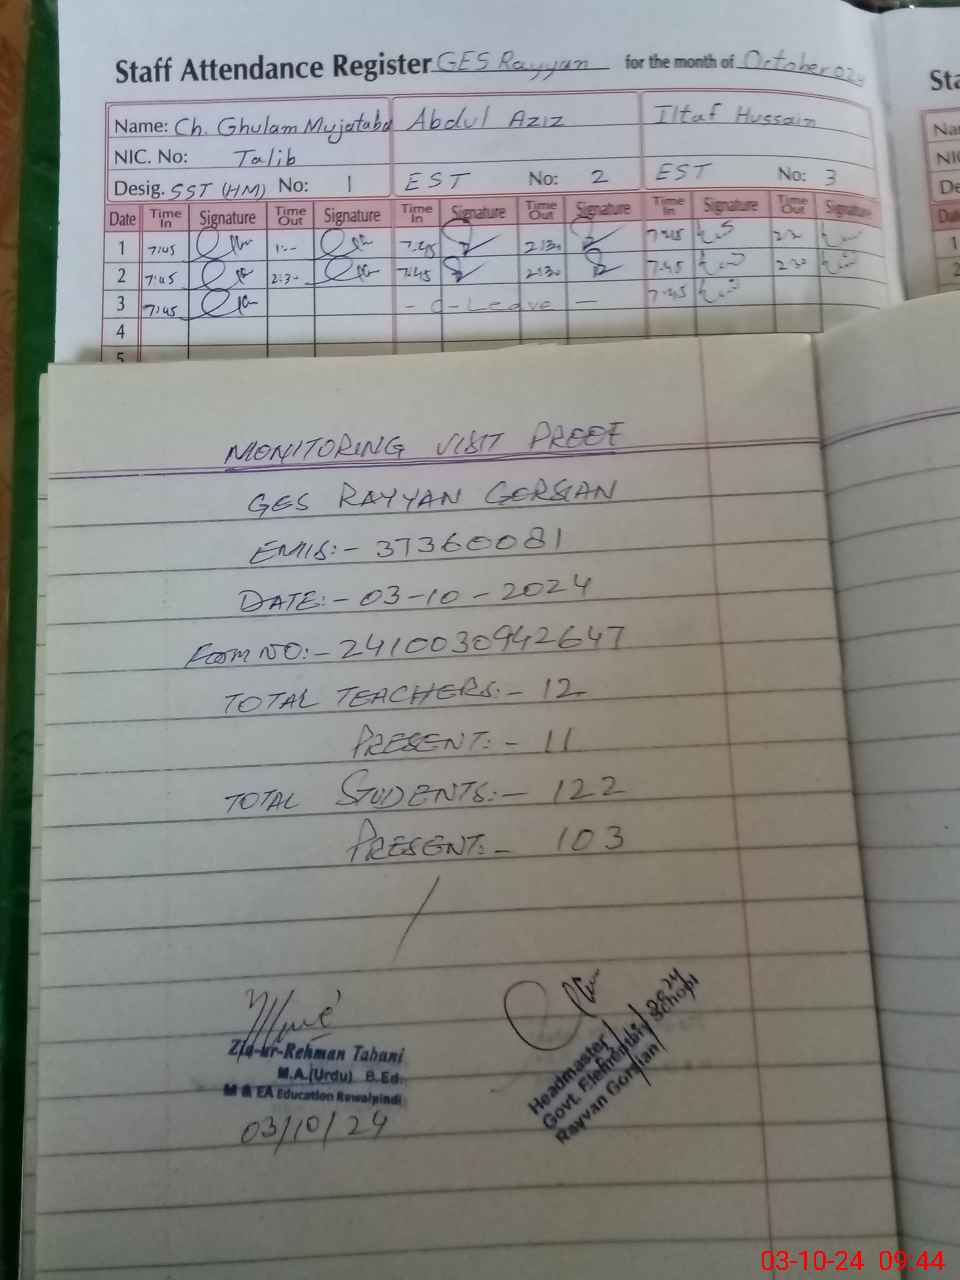 Staff Attendance Register GES Rayyan for the month of October 024
Sta
Name: Ch. Ghulam Mujataba Abdul Aziz Iltaf Hussain
NIC. No: Talib
Desig. SST (HM) No: 1 EST No: 2 EST No: 3
Date Time In Signature Time Out Signature Time In Signature Time Out Signature Time In Signature Time Out Signature
1 7:45 1:- 7:45 2:30 7:45
2 7:45 2:3- 7:45 2:30 7:45 2:30
3 7:45 - Leave - 7:45
4
5
MONITORING VISIT PROOF
GES RAYYAN GORSIAN
EMIS:- 37360081
DATE:- 03-10-2024
FORM NO:- 2410030942647
TOTAL TEACHERS:- 12
PRESENT:- 11
TOTAL STUDENTS:- 122
PRESENT:- 103
Zia-ur-Rehman Tahani
M.A.(Urdu) B.Ed.
M & EA Education Rawalpindi
03/10/24
Headmaster
Govt. Elementary School
Rayyan Gorsian
03-10-24 09:44